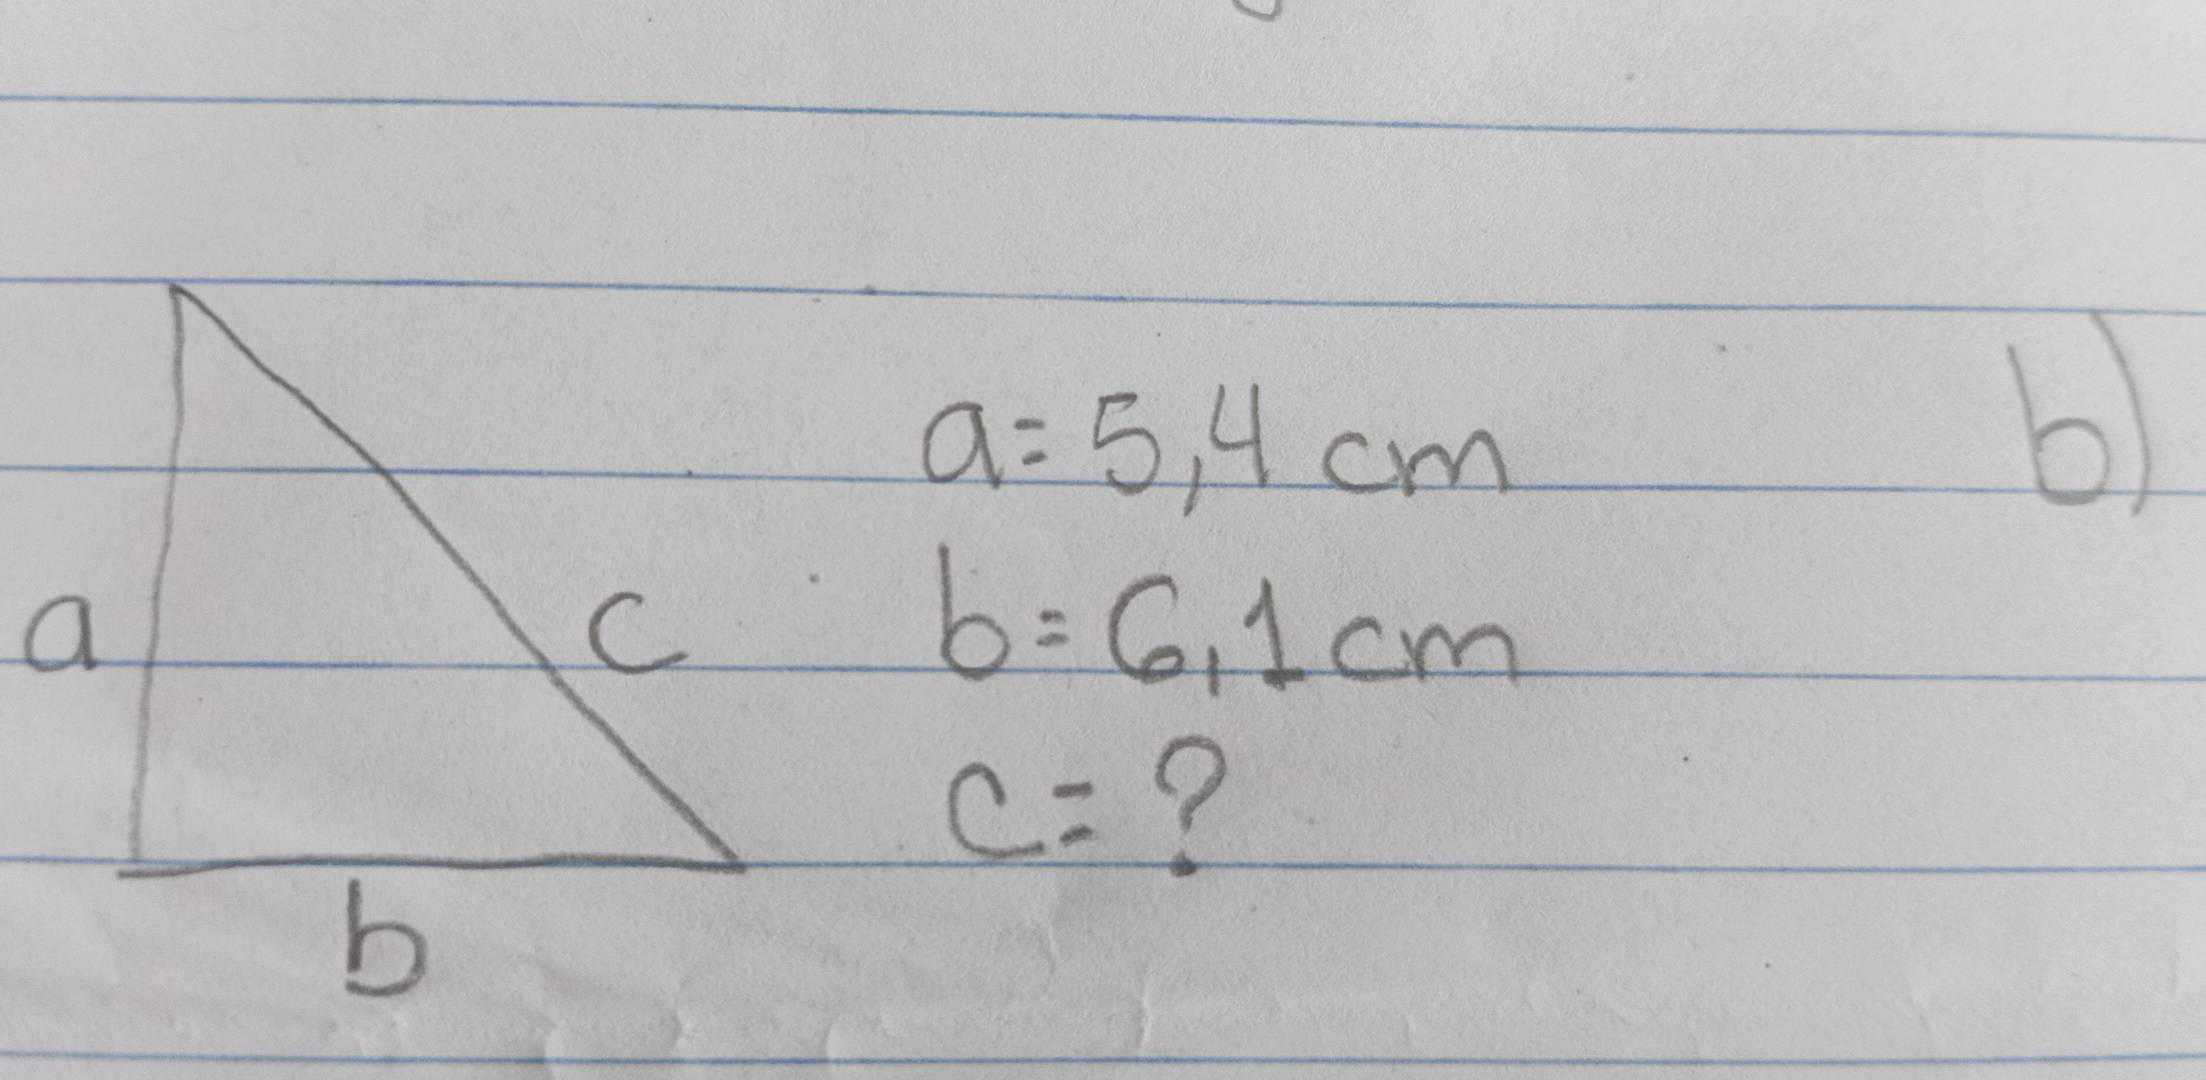 a= 5,4 cm
b= 6,1 cm
c= ?
a
c
b
b)